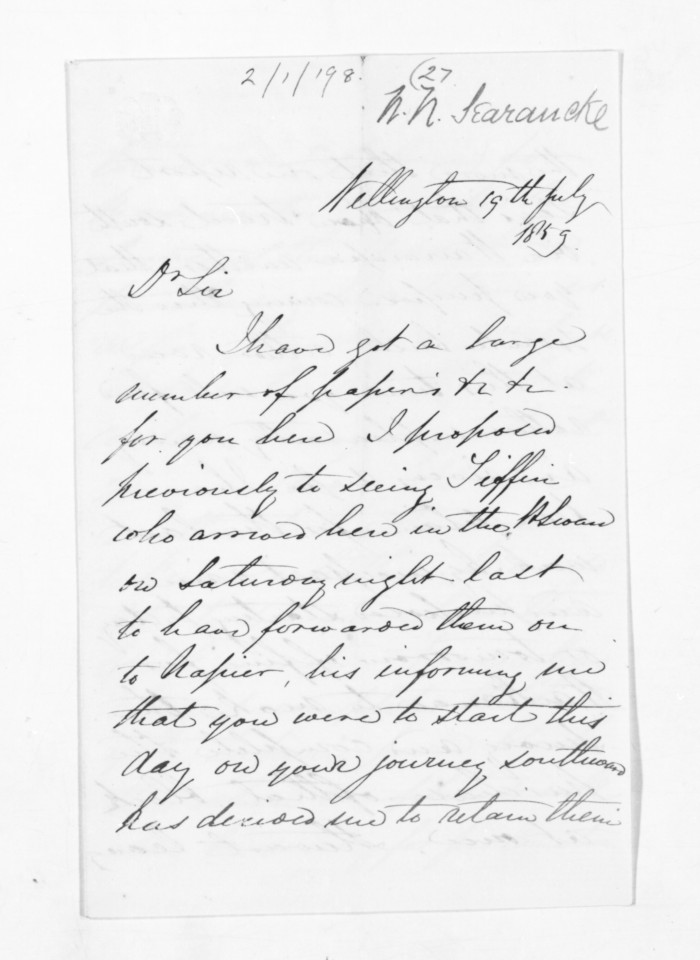 2/1/198.
(27
W. N. Searancke
Wellington 19th July
1859
Dr Sir
I have got a large
number of papers &c &c.
for you here I proposed
previously to seeing Tiffin
who arrived here in the W Swan
on Saturday night last
to have forwarded them on
to Napier, his informing me
that you were to start this
day on your journey southward
has decided me to retain them